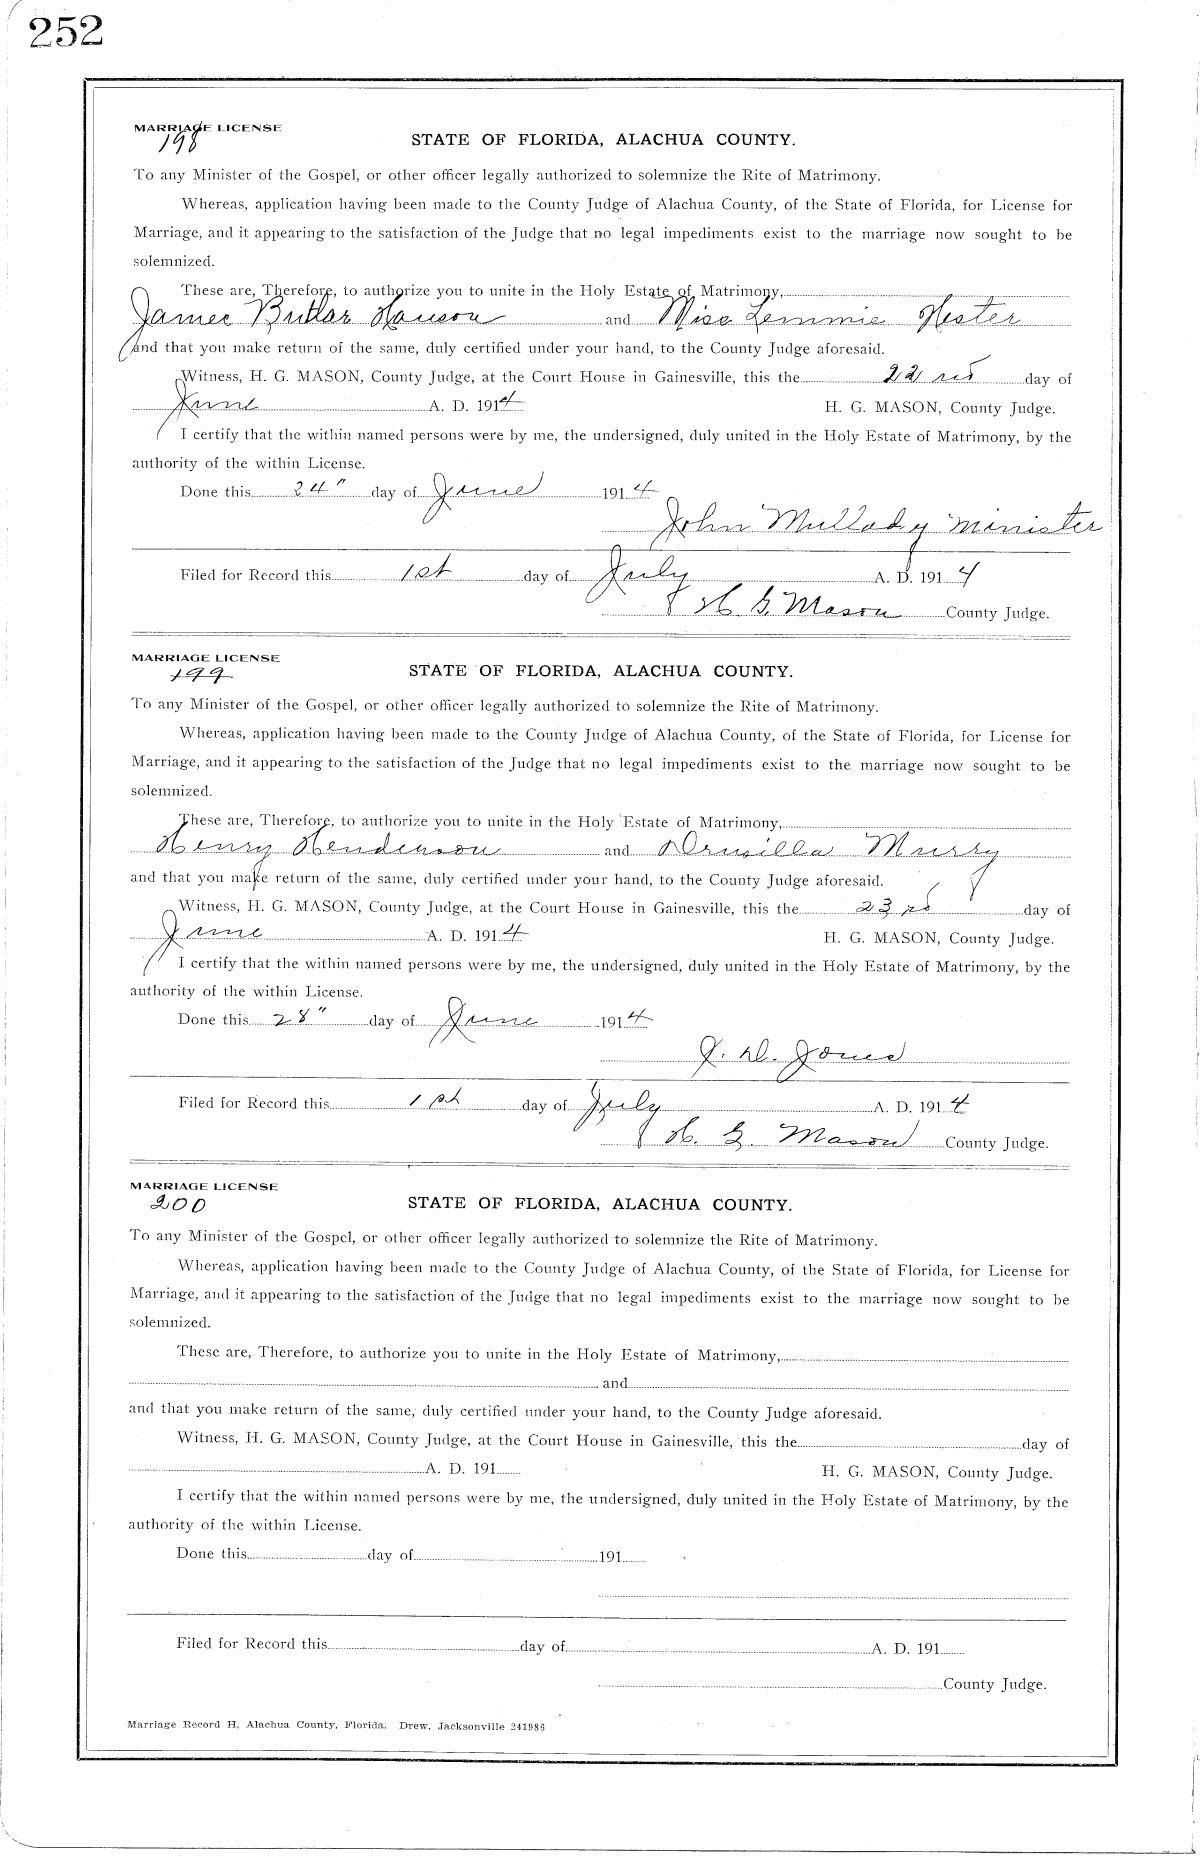 252
MARRIAGE LICENSE
198
STATE OF FLORIDA, ALACHUA COUNTY.
To any Minister of the Gospel, or other officer legally authorized to solemnize the Rite of Matrimony.
Whereas, application having been made to the County Judge of Alachua County, of the State of Florida, for License for
Marriage, and it appearing to the satisfaction of the Judge that no legal impediments exist to the marriage now sought to be
solemnized.
These are, Therefore, to authorize you to unite in the Holy Estate of Matrimony,
James Butlar and Miss Lemmie Hester
and that you make return of the same, duly certified under your hand, to the County Judge aforesaid.
Witness, H. G. MASON, County Judge, at the Court House in Gainesville, this the 22 day of
June A. D. 1914 H. G. MASON, County Judge.
I certify that the within named persons were by me, the undersigned, duly united in the Holy Estate of Matrimony, by the
authority of the within License.
Done this 24" day of June 1914
John Mullady Minister
Filed for Record this 1st day of July A. D. 1914
H G. Mason County Judge.
MARRIAGE LICENSE
199
STATE OF FLORIDA, ALACHUA COUNTY.
To any Minister of the Gospel, or other officer legally authorized to solemnize the Rite of Matrimony.
Whereas, application having been made to the County Judge of Alachua County, of the State of Florida, for License for
Marriage, and it appearing to the satisfaction of the Judge that no legal impediments exist to the marriage now sought to be
solemnized.
These are, Therefore, to authorize you to unite in the Holy Estate of Matrimony,
Henry Henderson and Drusilla Murry
and that you make return of the same, duly certified under your hand, to the County Judge aforesaid.
Witness, H. G. MASON, County Judge, at the Court House in Gainesville, this the 23rd day of
June A. D. 1914 H. G. MASON, County Judge.
I certify that the within named persons were by me, the undersigned, duly united in the Holy Estate of Matrimony, by the
authority of the within License.
Done this 28" day of June 1914
J. D. Jones
Filed for Record this 1st day of July A. D. 1914
H. G. Mason County Judge.
MARRIAGE LICENSE
200
STATE OF FLORIDA, ALACHUA COUNTY.
To any Minister of the Gospel, or other officer legally authorized to solemnize the Rite of Matrimony.
Whereas, application having been made to the County Judge of Alachua County, of the State of Florida, for License for
Marriage, and it appearing to the satisfaction of the Judge that no legal impediments exist to the marriage now sought to be
solemnized.
These are, Therefore, to authorize you to unite in the Holy Estate of Matrimony,
and
and that you make return of the same, duly certified under your hand, to the County Judge aforesaid.
Witness, H. G. MASON, County Judge, at the Court House in Gainesville, this the day of
A. D. 191 H. G. MASON, County Judge.
I certify that the within named persons were by me, the undersigned, duly united in the Holy Estate of Matrimony, by the
authority of the within License.
Done this day of 191
Filed for Record this day of A. D. 191
County Judge.
Marriage Record H, Alachua County, Florida. Drew, Jacksonville 241986